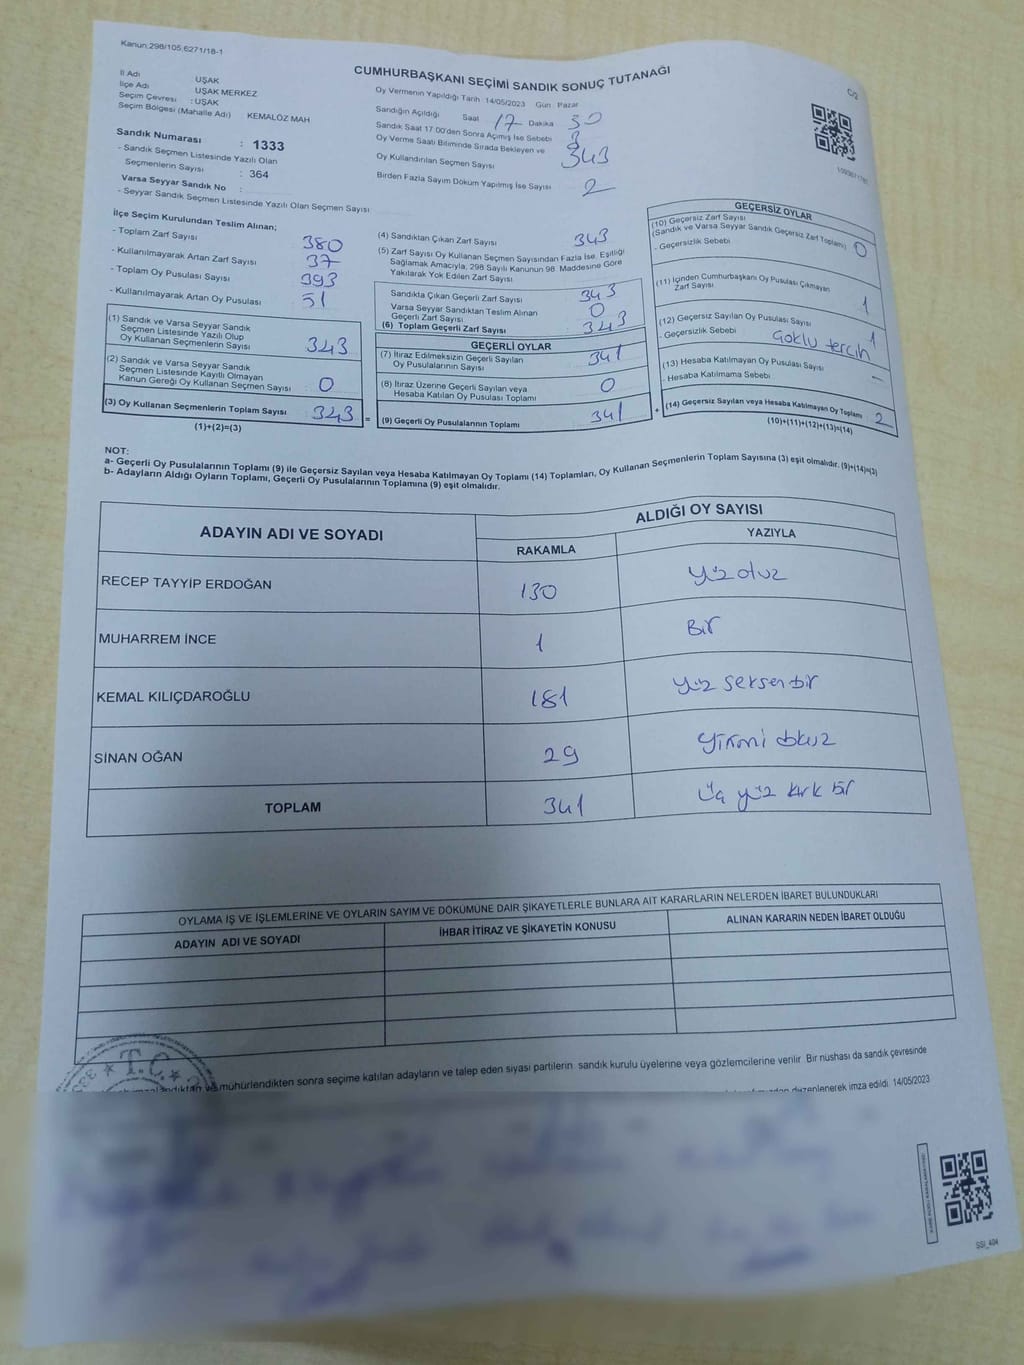 Kanun:298/105,6271/18-1
C/2
CUMHURBAŞKANI SEÇİMİ SANDIK SONUÇ TUTANAĞI
İl Adı UŞAK
İlçe Adı UŞAK MERKEZ
Seçim Çevresi : UŞAK
Seçim Bölgesi (Mahalle Adı) KEMALÖZ MAH
Sandık Numarası : 1333
- Sandık Seçmen Listesinde Yazılı Olan
Seçmenlerin Sayısı : 364
Varsa Seyyar Sandık No :
- Seyyar Sandık Seçmen Listesinde Yazılı Olan Seçmen Sayısı
Oy Vermenin Yapıldığı Tarih 14/05/2023 Gün : Pazar
Sandığın Açıldığı Saat 17 Dakika 30
Sandık Saat 17 00'den Sonra Açılmış İse Sebebi
Oy Verme Saati Bitiminde Sırada Bekleyen ve
Oy Kullandırılan Seçmen Sayısı 343
Birden Fazla Sayım Döküm Yapılmış İse Sayısı 2
İlçe Seçim Kurulundan Teslim Alınan;
- Toplam Zarf Sayısı 380
- Kullanılmayarak Artan Zarf Sayısı 37
- Toplam Oy Pusulası Sayısı 393
- Kullanılmayarak Artan Oy Pusulası 51
(1) Sandık ve Varsa Seyyar Sandık
Seçmen Listesinde Yazılı Olup
Oy Kullanan Seçmenlerin Sayısı 343
(2) Sandık ve Varsa Seyyar Sandık
Seçmen Listesinde Kayıtlı Olmayan
Kanun Gereği Oy Kullanan Seçmen Sayısı 0
(3) Oy Kullanan Seçmenlerin Toplam Sayısı 343 =
(1)+(2)=(3)
(4) Sandıktan Çıkan Zarf Sayısı 343
(5) Zarf Sayısı Oy Kullanan Seçmen Sayısından Fazla İse, Eşitliği
Sağlamak Amacıyla, 298 Sayılı Kanunun 98. Maddesine Göre
Yakılarak Yok Edilen Zarf Sayısı
Sandıkta Çıkan Geçerli Zarf Sayısı 343
Varsa Seyyar Sandıktan Teslim Alınan
Geçerli Zarf Sayısı 0
(6) Toplam Geçerli Zarf Sayısı 343
GEÇERLİ OYLAR
(7) İtiraz Edilmeksizin Geçerli Sayılan
Oy Pusulalarının Sayısı 341
(8) İtiraz Üzerine Geçerli Sayılan veya
Hesaba Katılan Oy Pusulası Toplamı 0
(9) Geçerli Oy Pusulalarının Toplamı 341 +
GEÇERSİZ OYLAR
(10) Geçersiz Zarf Sayısı
(Sandık ve Varsa Seyyar Sandık Geçersiz Zarf Toplamı) 0
- Geçersizlik Sebebi
(11) İçinden Cumhurbaşkanı Oy Pusulası Çıkmayan
Zarf Sayısı 1
(12) Geçersiz Sayılan Oy Pusulası Sayısı 1
- Geçersizlik Sebebi Çoklu tercih
(13) Hesaba Katılmayan Oy Pusulası Sayısı –
- Hesaba Katılmama Sebebi
(14) Geçersiz Sayılan veya Hesaba Katılmayan Oy Toplamı 2
(10)+(11)+(12)+(13)=(14)
NOT:
a- Geçerli Oy Pusulalarının Toplamı (9) ile Geçersiz Sayılan veya Hesaba Katılmayan Oy Toplamı (14) Toplamları, Oy Kullanan Seçmenlerin Toplam Sayısına (3) eşit olmalıdır. (9)+(14)=(3)
b- Adayların Aldığı Oyların Toplamı, Geçerli Oy Pusulalarının Toplamına (9) eşit olmalıdır.
ADAYIN ADI VE SOYADI ALDIĞI OY SAYISI
RAKAMLA YAZIYLA
RECEP TAYYİP ERDOĞAN 130 yüz otuz
MUHARREM İNCE 1 Bir
KEMAL KILIÇDAROĞLU 181 yüz seksen bir
SİNAN OĞAN 29 yirmi dokuz
TOPLAM 341 üç yüz kırk bir
OYLAMA İŞ VE İŞLEMLERİNE VE OYLARIN SAYIM VE DÖKÜMÜNE DAİR ŞİKAYETLERLE BUNLARA AİT KARARLARIN NELERDEN İBARET BULUNDUKLARI
ADAYIN ADI VE SOYADI İHBAR İTİRAZ VE ŞİKAYETİN KONUSU ALINAN KARARIN NEDEN İBARET OLDUĞU
T.C.
mühürlendikten sonra seçime katılan adayların ve talep eden siyasi partilerin sandık kurulu üyelerine veya gözlemcilerine verilir. Bir nüshası da sandık çevresinde
düzenlenerek imza edildi. 14/05/2023
SSI_404